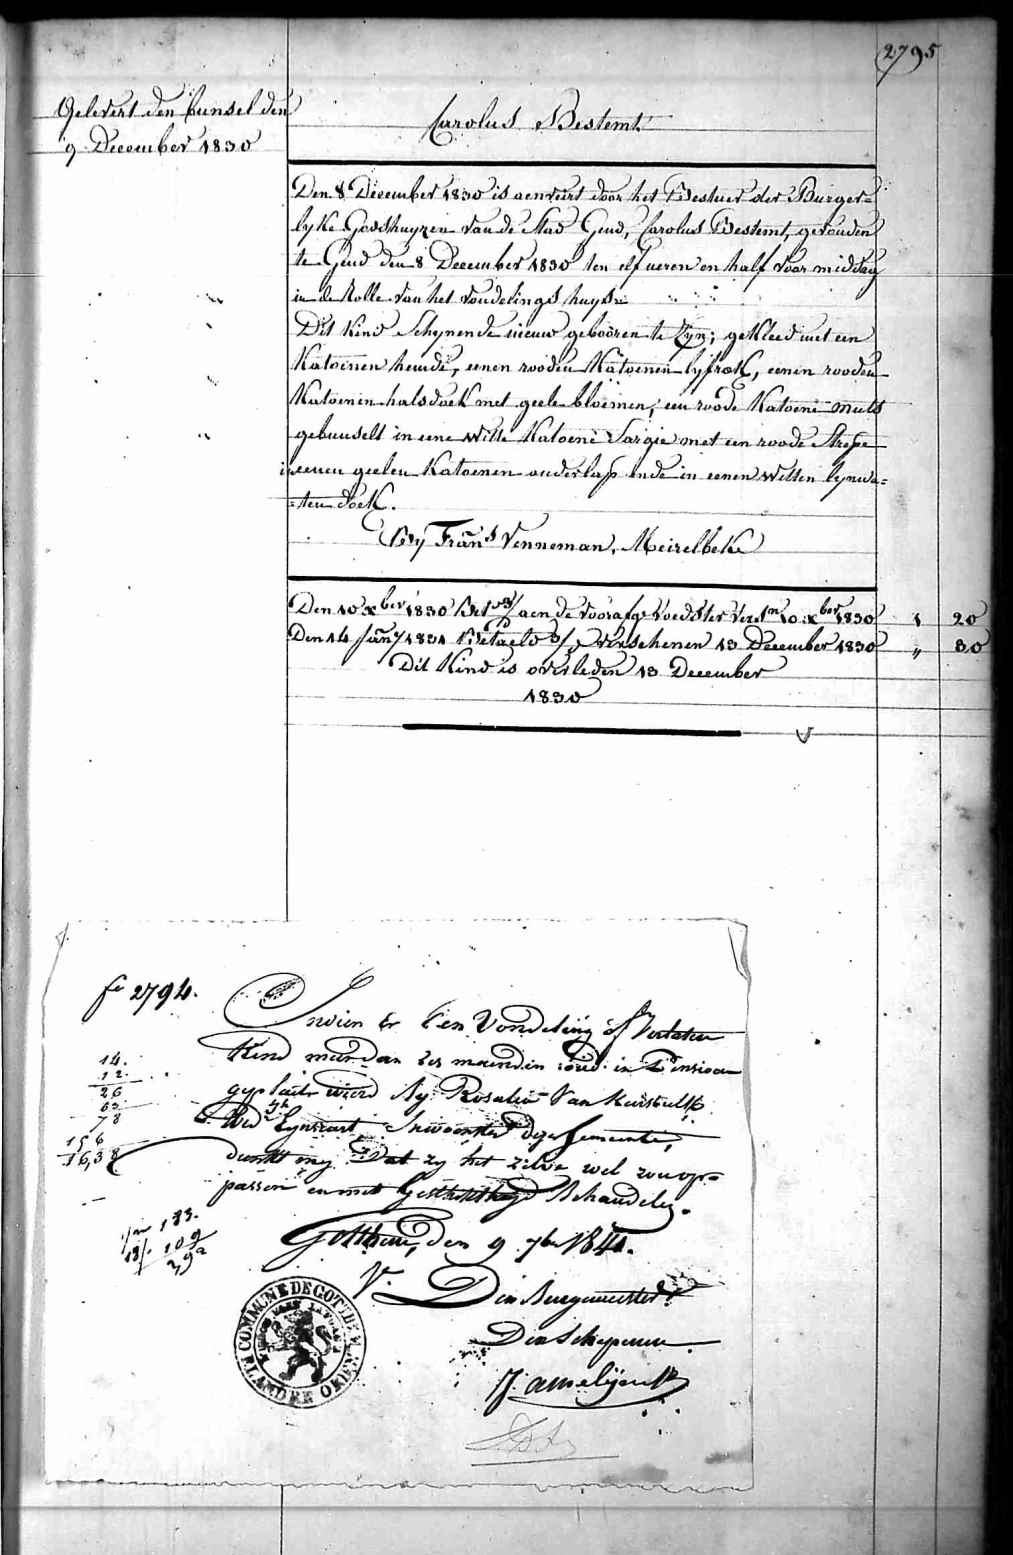 2795
Gelevert den bunsel den
9 December 1830
Carolus Bestemt
Den 8 December 1830 is aenveirt door het Bestuer der Burger=
lyke Godshuyzen van de Stad Gend, Carolus Bestemt, gevonden
te Gend den 8 December 1830 ten elf ueren en half voor middag
in de Rolle van het vondelings huys
Dit Kind Schynende nieuw gebooren te Zyn; gekleed met een
Katoenen hemde, eenen rooden Katoenen lyfrok, eenen rooden
Katoenen halsdoek met geele bloemen, een roode Katoene muts
gebunselt in eene witte Katoene Sargie met een roode Strepe
in eenen geelen Katoenen onderlap ende in eenen witten lynwa=
=ten doek.
By Frans Venneman, Meirelbeke
Den 10 xber 1830 aen de voorafg. voedster 10 xber 1830 1 20
Den 14 Jany 1831 Betaeld verschenen 13 December 1830 „ 30
Dit Kind is overleden 13 December
1830
fo 2794.
Indien er Een Vondeling of Verlaten
Kind meer dan zes maenden oud in Pensioen
geplaetst wierd by Rosalie Van
Wed Inwoonster dezer Gemeente,
dunkt my Dat zy het zelve wel zou op=
passen en met behandelen.
Gotthem, den 9 7ber 1841.
V. Den Burgemeester
Den Schepenen
J. amelijnck
14.
12.
26
65
78
156
16,38
183.
109
COMMUNE DE GOTTHEM
FLANDRE ORIENT